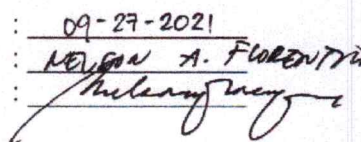 : 09-27-2021
: NELSON A. FLORENTIN
: